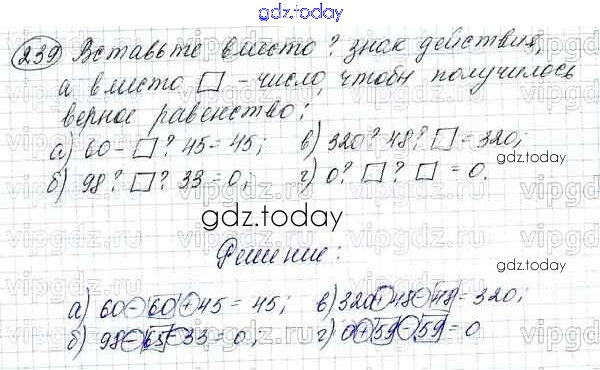 gdz.today
239 Вставьте вместо ? знак действия,
а вместо □ - число, чтобы получилось
верное равенство:
а) 60 - □ ? 45 = 45; в) 320 ? 48 ? □ = 320;
gdz.today
б) 98 ? □ ? 33 = 0; г) 0 ? □ ? □ = 0.
gdz.today
Решение:
а) 60 - 60 + 45 = 45; в) 320 + 48 - 48 = 320;
б) 98 - 65 - 33 = 0; г) 0 + 59 - 59 = 0
gdz.today